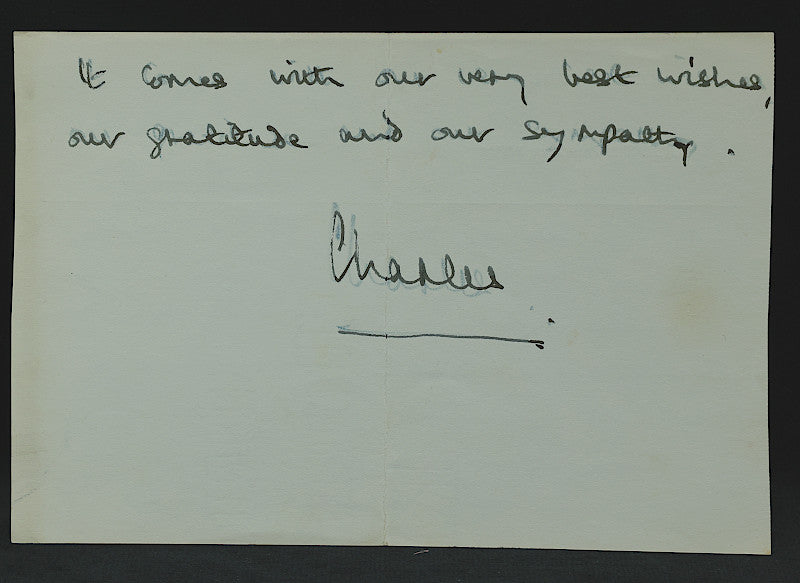 It comes with our very best wishes,
our gratitude and our sympathy.
Charles